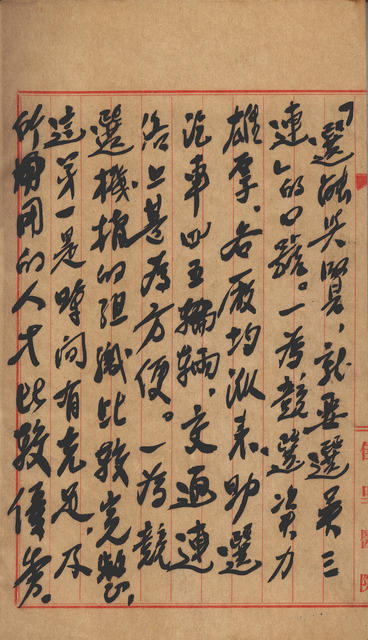 「選能與賢,就要選吳三
連」的口號。一為競選資力
雄厚。各廠均派來助選
汽車四五輛,交通連
絡上甚為方便。一為競
選機構的組織比較完整,
這第一是時間有充足,及
所用的人才比較優秀。
佳里醫院